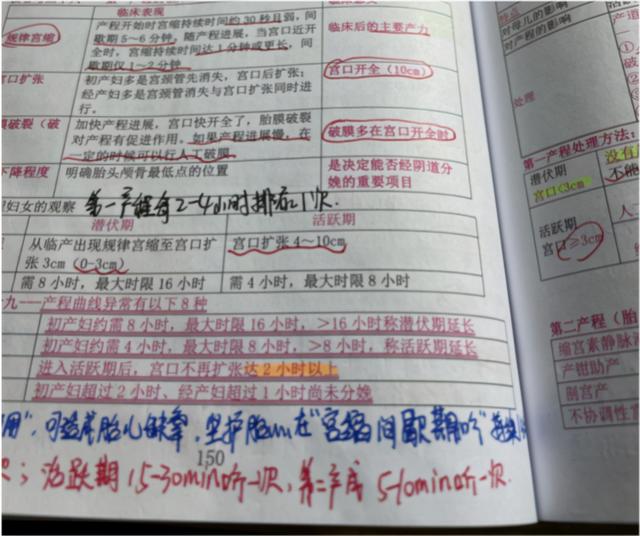 临床表现
规律宫缩
产程开始时宫缩持续时间约 30 秒且弱，间
歇期 5～6 分钟，随产程进展，当宫口近开
全时，宫缩持续时间达 1 分钟或更长，间
歇期仅 1～2 分钟
临床后的主要产力
宫口扩张
初产妇多是宫颈管先消失，宫口后扩张；
经产妇多是宫颈管消失与宫口扩张同时进
行。
宫口开全（10cm）
膜破裂（破
加快产程进展，宫口快开全了，胎膜破裂
对产程有促进作用。如果产程进展慢，在
一定的时候可以行人工破膜
破膜多在宫口开全时
下降程度
明确胎头颅骨最低点的位置
是决定能否经阴道分
娩的重要项目
妇女的观察
第一产程每2-4小时排尿1次
潜伏期
活跃期
从临产出现规律宫缩至宫口扩
张 3cm（0-3cm）
宫口扩张 4～10cm
需 8 小时，最大时限 16 小时
需 4 小时，最大时限 8 小时
九一一产程曲线异常有以下 8 种
初产妇约需 8 小时，最大时限 16 小时，>16 小时称潜伏期延长
初产妇约需 4 小时，最大时限 8 小时，>8 小时，称活跃期延长
进入活跃期后，宫口不再扩张达 2 小时以上
初产妇超过 2 小时、经产妇超过 1 小时尚未分娩
用"，可造成胎儿缺氧，
在"宫缩间歇期听"
150
；活跃期15-30min听一次，第二产程 5-10min听一次.
特点
对母儿的影响
对产程的影响
处理
第一产程处理方法：
潜伏期
宫口<3cm
没有
不能
活跃期
宫口≥3cm
人
第二产程（胎
缩宫素静脉滴
产钳助产
剖宫产
不协调性宫